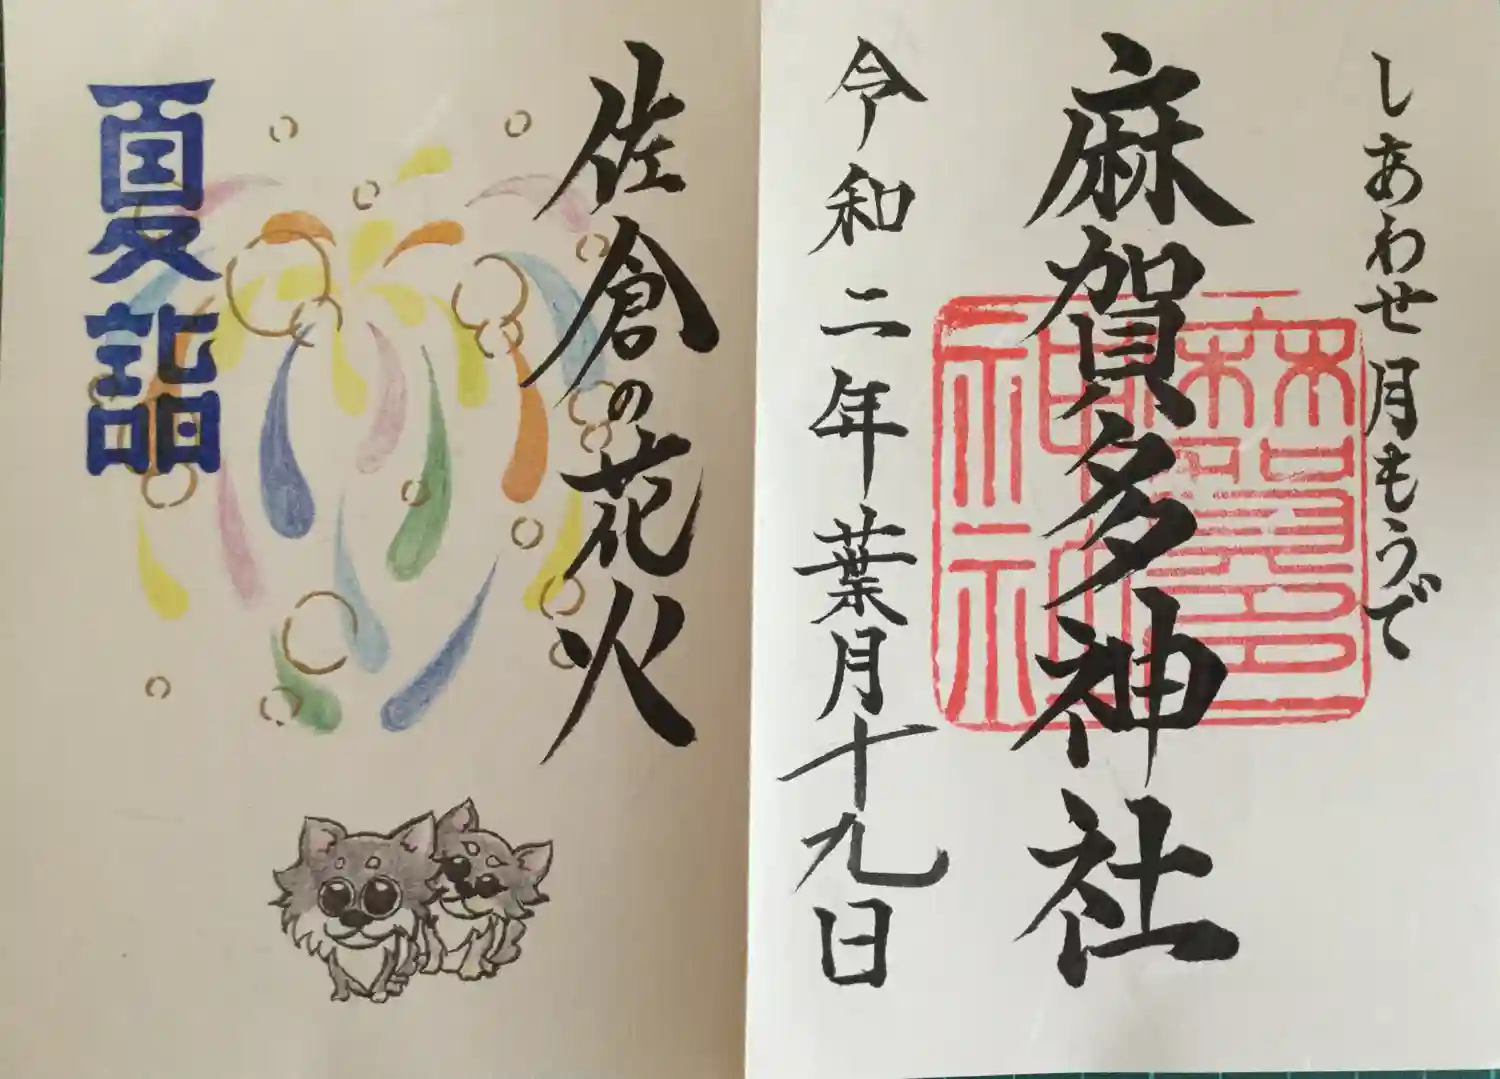 しあわせ月もうで
麻賀多神社
令和二年葉月十九日
佐倉の花火
夏詣
麻賀多
神社